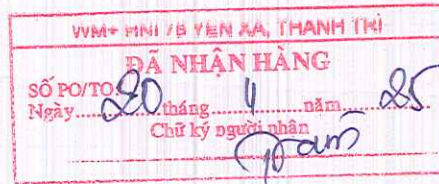 WM+ HNI 7B YÊN XÁ, THANH TRÌ
ĐÃ NHẬN HÀNG
SỐ PO/TO
Ngày 20 tháng 4 năm 25
Chữ ký người nhận